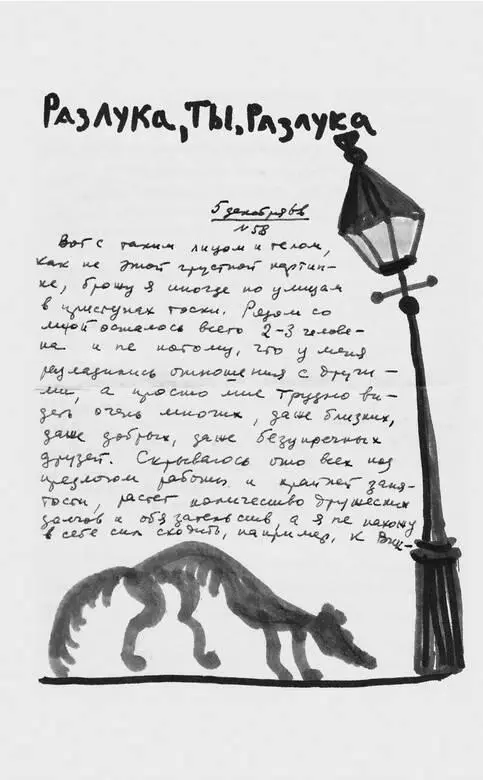 РАЗЛУКА, ТЫ, РАЗЛУКА
5 декабря 68
№58
Вот с таким лицом и телом,
как на этой грустной картин-
ке, брожу я иногда по улицам
в приступах тоски. Рядом со
мной осталось всего 2-3 челове-
ка и не потому, что у меня
разладились отношения с други-
ми, а просто мне трудно ви-
деть очень многих, даже близких,
даже добрых, даже безупречных
друзей. Скрываюсь ото всех под
предлогом работы и крайней заня-
тости, растет количество дружеских
долгов и обязательств, а я не нахожу
в себе сил сходить, например, к Вик-